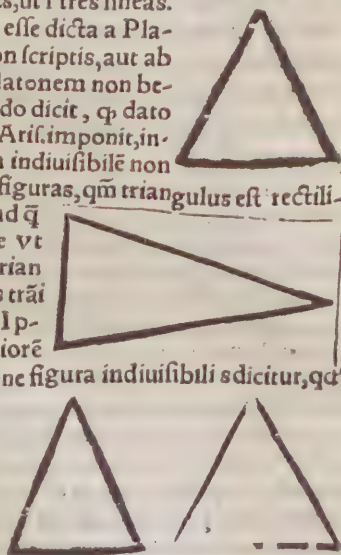 ut i tres lineas.
eſſe dicta a Pla-
ſcriptis, aut ab
latonem non be-
do dicit, ꝙ dato
Ariſ. imponit, in-
indiuiſibilē non
figuras, qm̄ triangulus eſt rectili-
q̄
vt
rian
trāi
l p-
iorē
ne figura indiuiſibili s dicitur,